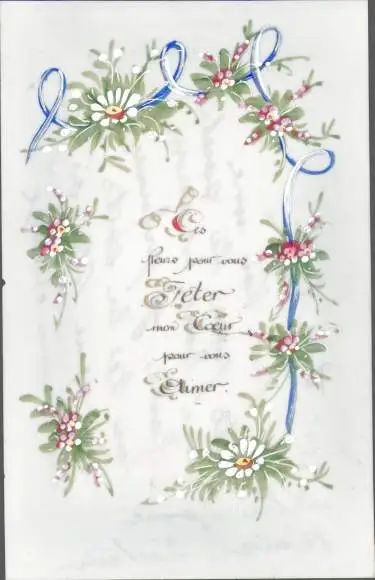 Ces
fleurs pour vous
Fêter
mon Cœur
pour vous
Aimer.